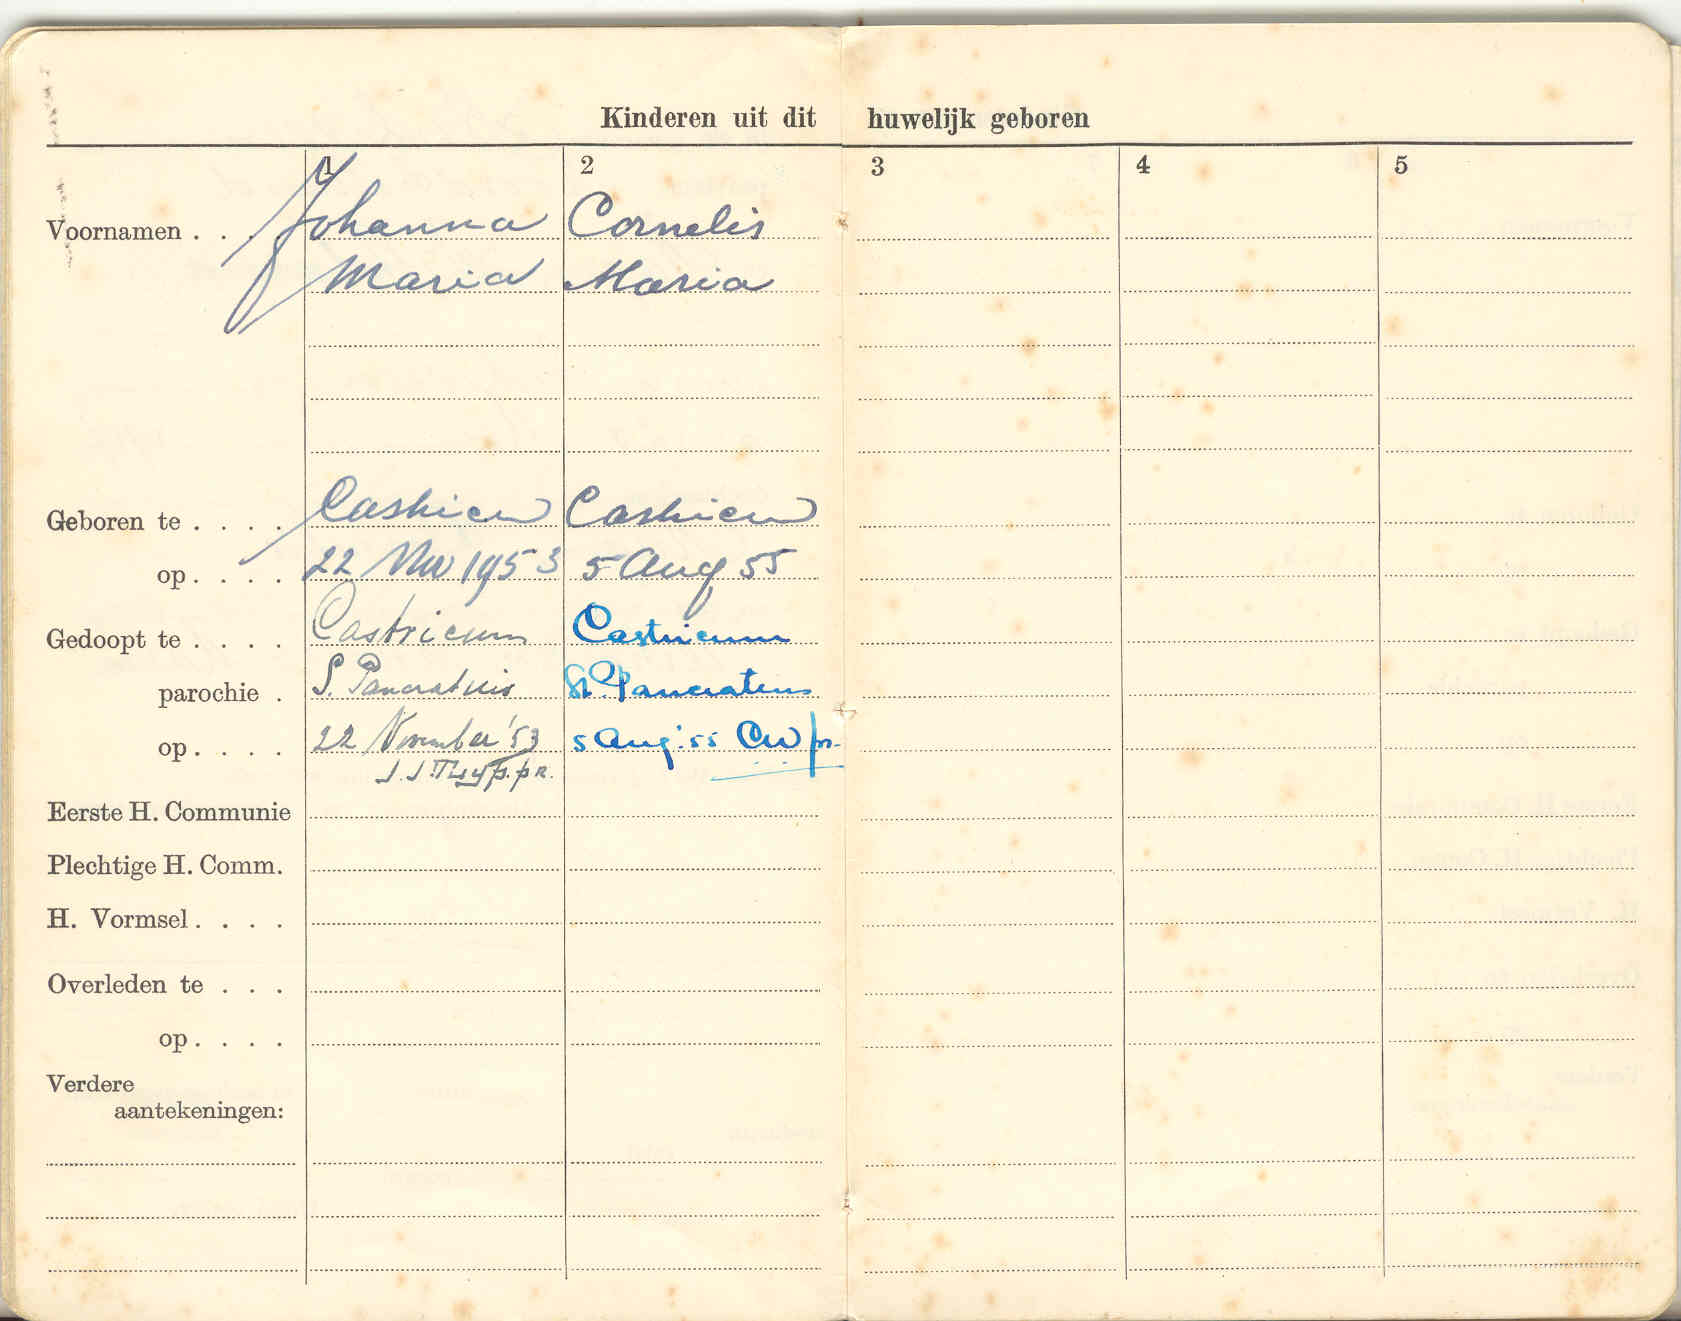 Kinderen uit dit huwelijk geboren
1 2 3 4 5
Voornamen . . . Johanna Cornelis
Maria Maria
Geboren te . . . . Castricum Castricum
op . . . . 22 Nov 1953 5 Aug 55
Gedoopt te . . . . Castricum Castricum
parochie . S. Pancratius St. Pancratius
op . . . . 22 November '53 5 Aug. '55 CW pr.
J. J. pr.
Eerste H. Communie
Plechtige H. Comm.
H. Vormsel . . . .
Overleden te . . .
op . . . .
Verdere
aantekeningen: